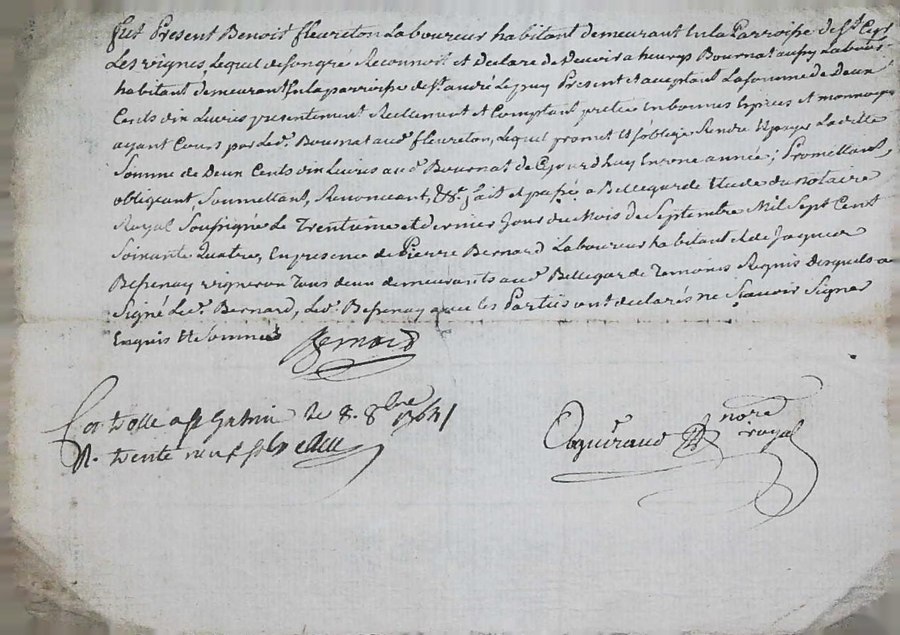 fut Present Benoist fleureton Laboureur habitant demeurant En la Parroisse de St. Cyr
Les vignes, Lequel de son gré Reconnoit et Declare de Devoir a heurys Bournat aussy Labour
habitant demeurant En la parroisse de St. andré Le puy Present et acceptant La somme de Deux
Cents dix Livres presentement Reellement et Comptant pretée En bonnes Especes et monnoyes
ayant Cours par Led. Bournat aud. fleureton, Lequel promet Et s'oblige Rendre Et payer Laditte
Somme de Deux Cents dix Livres aud. Bournat de Cejourdhuy En une année; Promettant,
obligeant, Soumettant, Renonceant, &c. fait et passé a Bellegarde Etude du Notaire
Royal Soussigné Le Trentieme et dernier Jour du Mois de Septembre Mil Sept Cent
Soixante Quatre, En presence de Pierre Bernard Laboureur habitant et de Jacques
Bessenay vigneron Tous deux demeurants aud. Bellegarde Temoins Requis desquels a
Signé Led. Bernard, Led. Bessenay avec les Parties ont declarés ne Scavoir Signer
Enquis Et Sommés
Bernard
Controllé a St Galmier Le 8. 8bre 1764
R. trente neuf sols
Coquéraud nore royal